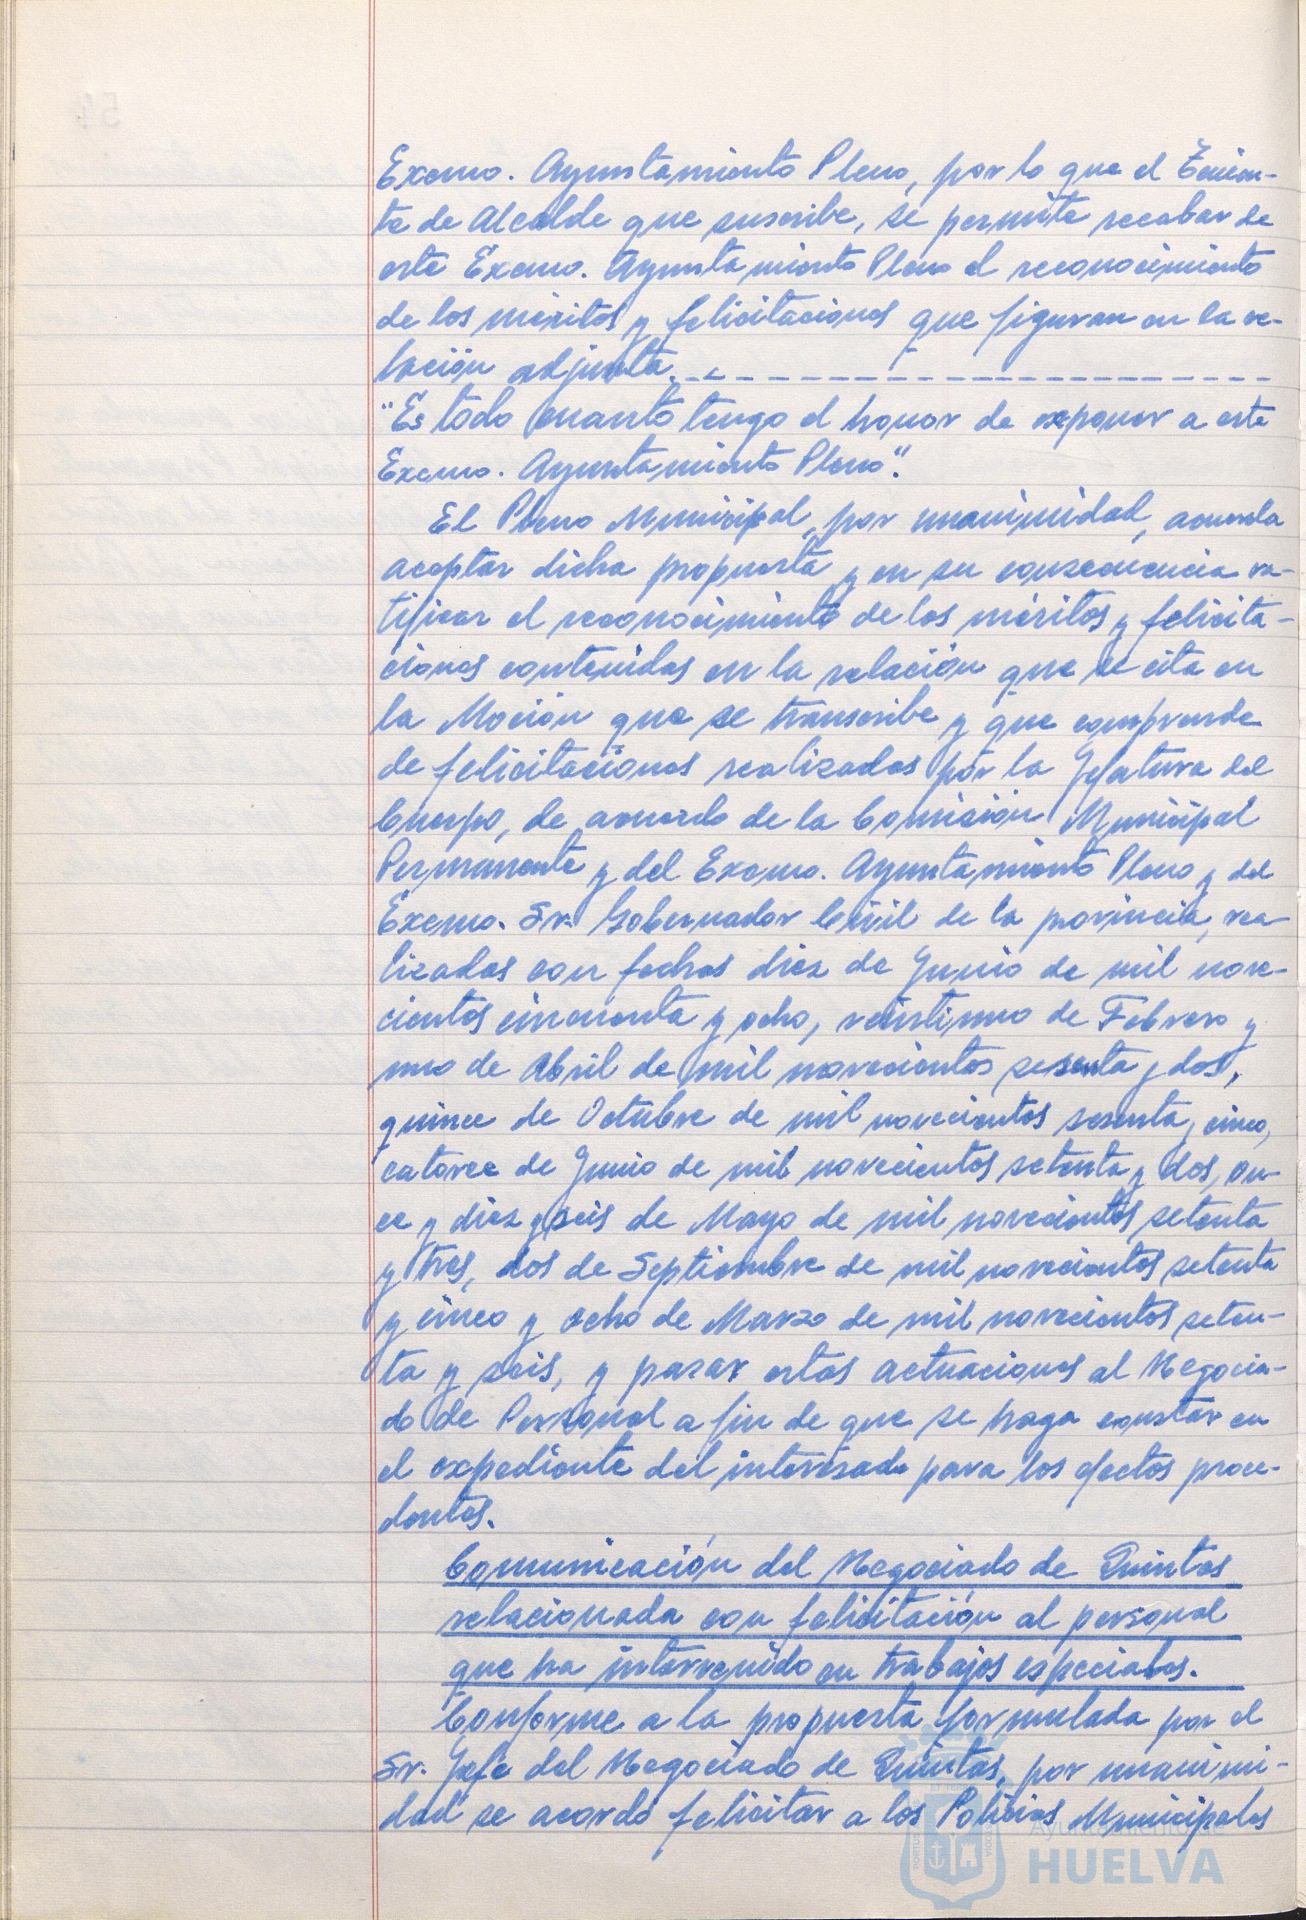 Excmo. Ayuntamiento Pleno, por lo que el Tenien-
te de Alcalde que suscribe, se permite recabar de
este Excmo. Ayuntamiento Pleno el reconocimiento
de los méritos y felicitaciones que figuran en la re-
lación adjunta.
"Es todo cuanto tengo el honor de exponer a este
Excmo. Ayuntamiento Pleno".
El Pleno Municipal, por unanimidad, acuerda
aceptar dicha propuesta y en su consecuencia ra-
tificar el reconocimiento de los méritos y felicita-
ciones contenidas en la relación que se cita en
la Moción que se transcribe y que comprende
de felicitaciones realizadas por la Jefatura del
Cuerpo, de acuerdo de la Comisión Municipal
Permanente y del Excmo. Ayuntamiento Pleno y del
Excmo. Sr. Gobernador Civil de la provincia, rea
lizadas con fechas diez de Junio de mil nove-
cientos cincuenta y ocho, veintiuno de Febrero y
uno de Abril de mil novecientos sesenta y dos,
quince de Octubre de mil novecientos sesenta y cinco,
catorce de Junio de mil novecientos setenta y dos, on-
ce y diez y seis de Mayo de mil novecientos setenta
y tres, dos de Septiembre de mil novecientos setenta
y cinco y ocho de Marzo de mil novecientos seten-
ta y seis, y pasar estas actuaciones al Negocia-
do de Personal a fin de que se haga constar en
el expediente del interesado para los efectos proce-
dentes.
Comunicación del Negociado de Quintas
relacionada con felicitación al personal
que ha intervenido en trabajos especiales.
Conforme a la propuesta formulada por el
Sr. Jefe del Negociado de Quintas, por unanimi-
dad se acordó felicitar a los Policías Municipales
Ayuntamiento de
HUELVA